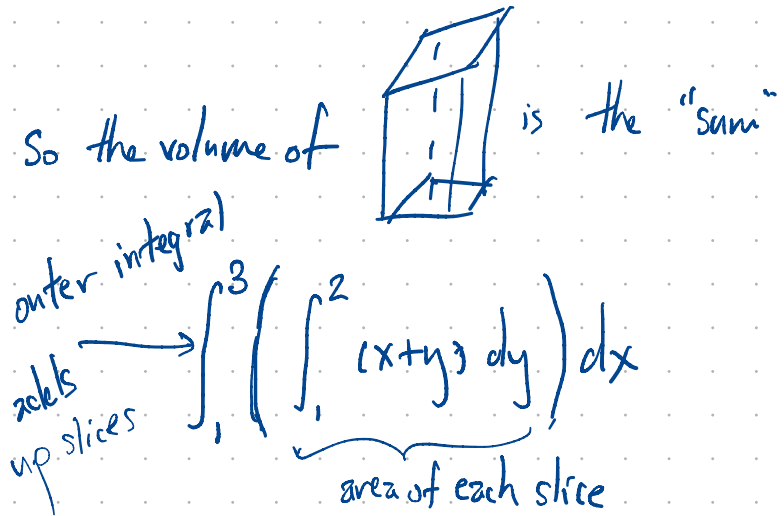 So the volume of is the "sum"
outer integral
adds
up slices
∫₁³ ( ∫₁² (x+y) dy ) dx
area of each slice